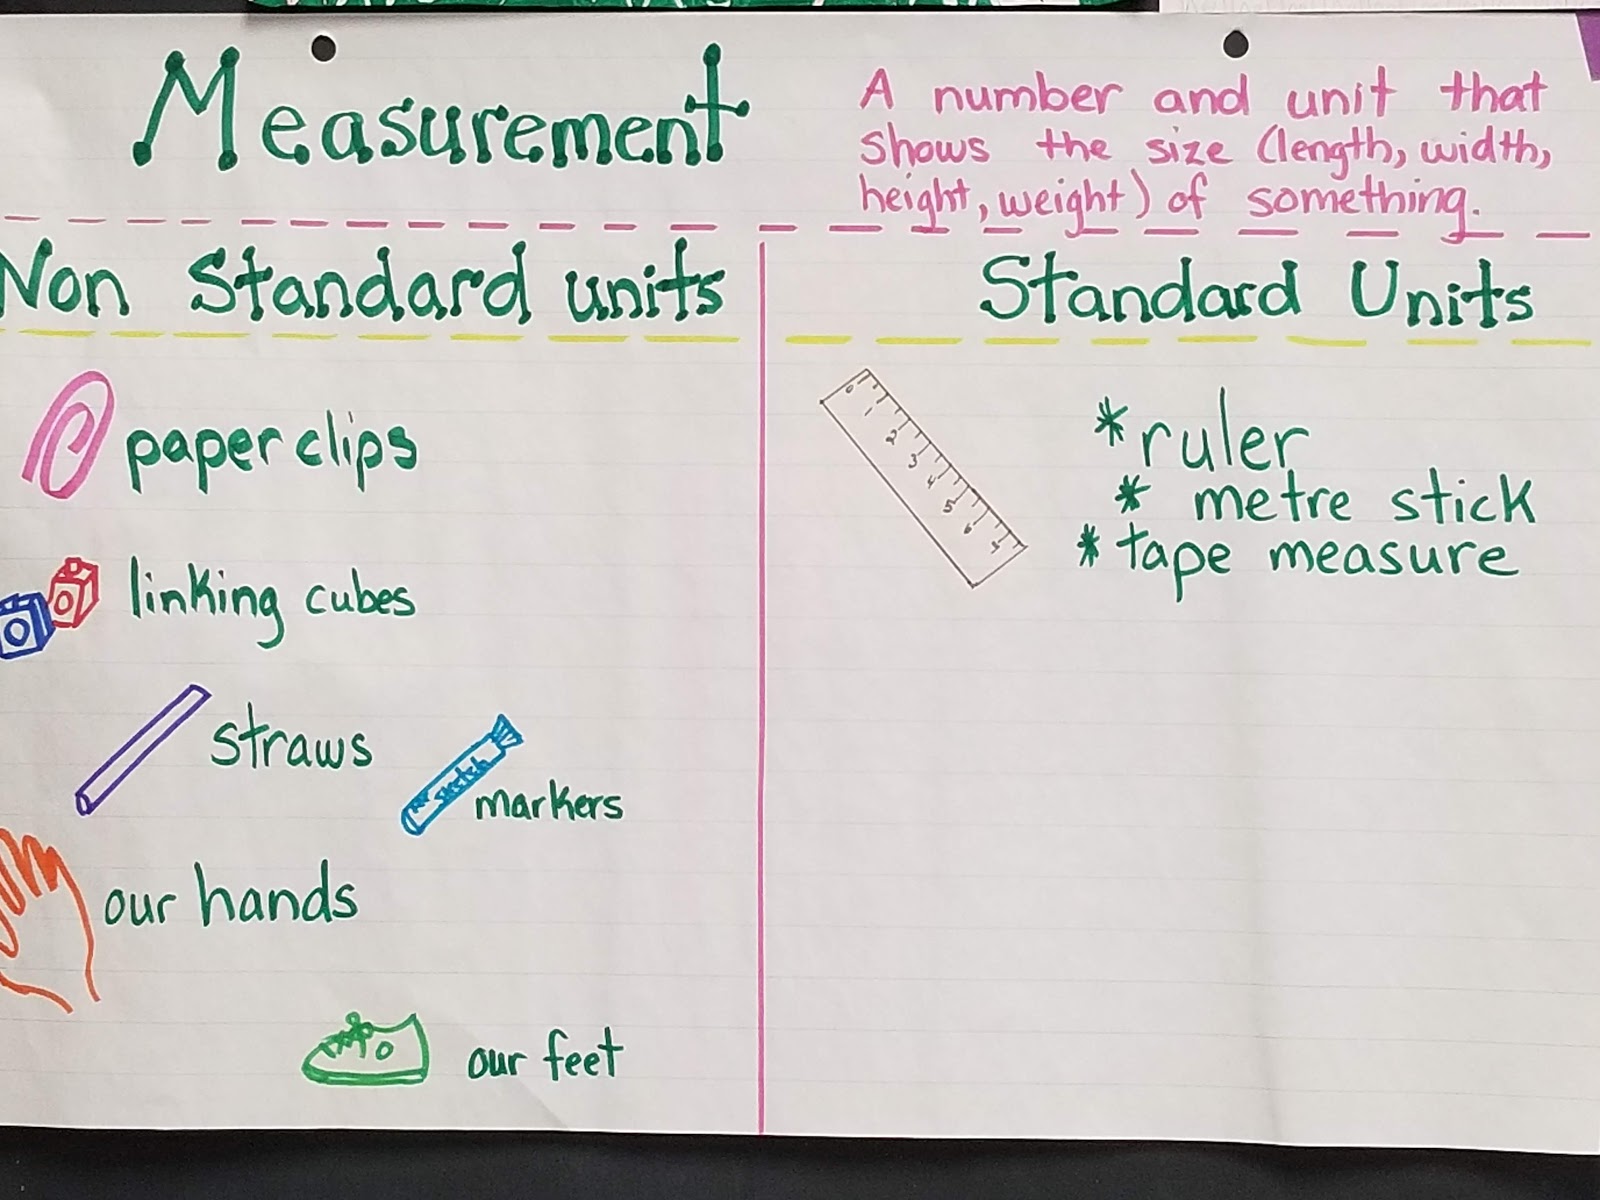 Measurement
A number and unit that
shows the size (length, width,
height, weight) of something.
Non Standard units
paper clips
linking cubes
straws
sketch
markers
our hands
our feet
Standard Units
0 1 2 3 4 5 6 7
*ruler
* metre stick
* tape measure